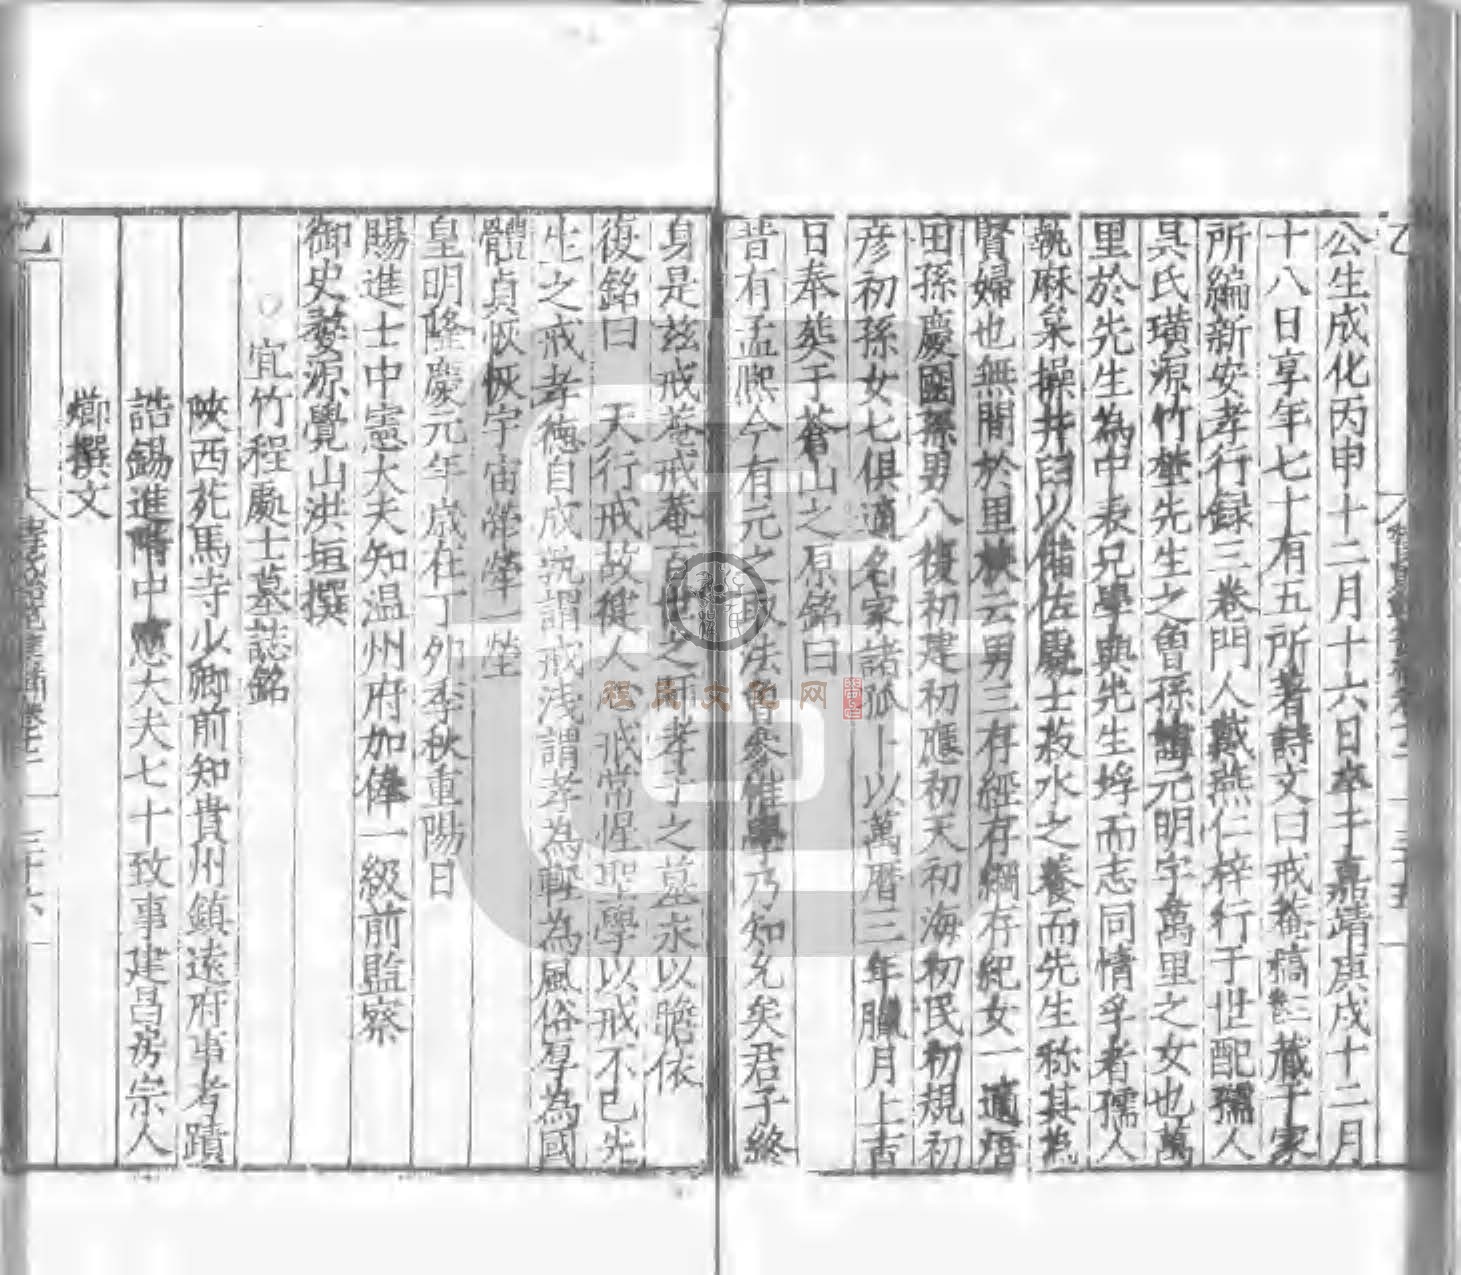 公生成化丙申十二月十六日卒于嘉靖庚戌十二月
十八日享年七十有五所著詩文曰戒菴稿藏于家
所編新安孝行録三卷門人戴燕仁梓行于世配孺人
吳氏璜源竹埜先生之曾孫諱元明字萬里之女也萬
里於先生為中表兄學與先生埒而志同情孚者孺人
執麻枲操井臼以備佐處士菽水之養而先生称其為
賢婦也無間於里云男三存經存綱存紀女一適
田孫慶國孫男八復初建初應初天初海初民初規初
彦初孫女七俱適名家諸孤卜以萬曆三年臘月上吉
日奉葬于蒼山之原銘曰
昔有孟熙今有元之取法曾參惟學乃知允矣君子終
身是玆戒菴戒菴百世之師孝子之墓永以瞻依
復銘曰 天行戒故健人心戒常惺聖學以戒不已先
生之戒孝德自成孰謂戒浅謂孝為輕為風俗厚為國
體貞恢恢宇宙煢煢一塋
皇明隆慶元年歲在丁卯季秋重陽日
賜進士中憲大夫知温州府加俸一級前監察
御史婺源覺山洪垣撰
宜竹程處士墓誌銘
陝西苑馬寺少卿前知貴州鎮遠府事考蹟
誥錫進階中憲大夫七十致事建昌房宗人
爵撰文
三十六
程氏文化网